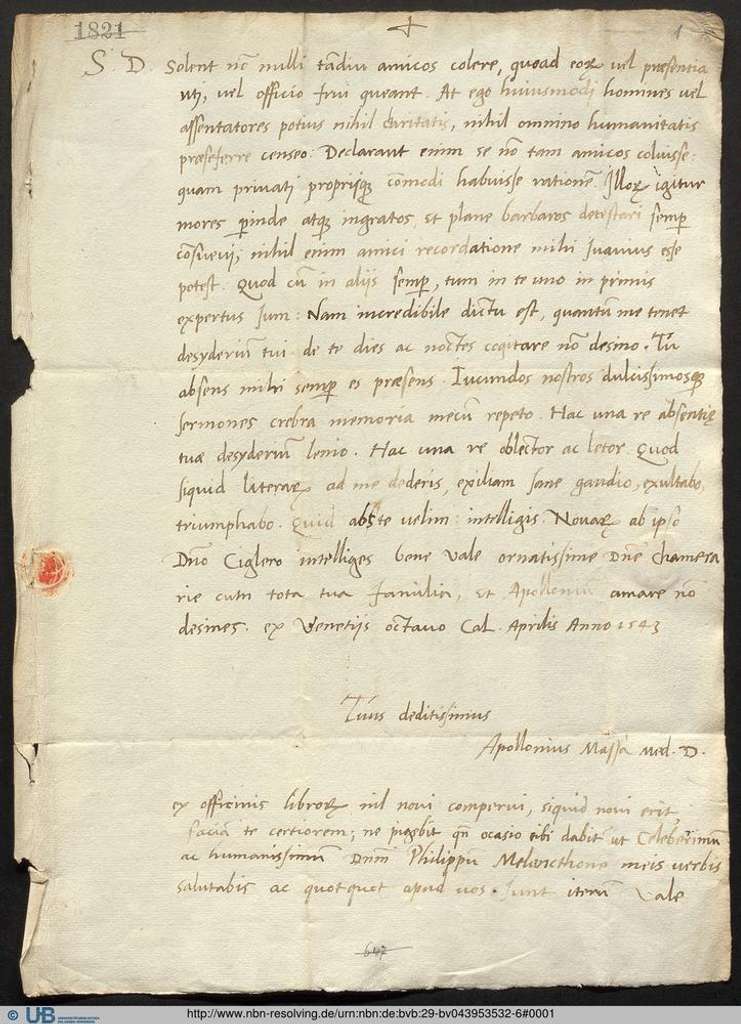 1821
1
S. D. Solent nõ nulli tãdiu amicos colere, quoad eorꝝ vel præsentia
uti, vel officio frui queant. At ego huiusmodi homines vel
assentatores potius nihil charitatis, nihil omnino humanitatis
præseferre censeo: Declarant enim se nõ tam amicos coluisse:
quam privati propriiqꝫ cõmodi habuisse rationẽ. Illorꝝ igitur
mores perinde atqꝫ ingratos, et plane barbaros detestari semp
cõsuevi; nihil enim amici recordatione mihi suavius esse
potest. Quod cũ in aliis semp, tum in te uno in primis
expertus sum: Nam incredibile dictu est, quantũ me tenet
desyderiũ tui. de te dies ac noctes cogitare nõ desino. Tu
absens mihi semp es præsens. Iucundos nostros dulcissimosqꝫ
sermones crebra memoria mecũ repeto. Hac una re absentię
tuæ desyderiũ lenio. Hac una re oblector ac letor. Quod
siquid literarꝝ ad me dederis, exiliam sane gaudio, exultabo,
triumphabo. Quid abste velim: intelligis. Novarꝝ ab ipso
Dno Ciglero intelliges bene vale ornatissime Dne chamera
rie cum tota tua familia, et Apolloniũ amare nõ
desines. ex Venetijs octavo Cal. Aprilis Anno 1543
Tuus deditissimus
Apollonius Massa med. D.
ex officinis librorꝝ nil novi comperui, siquid novi erit
faciã te certiorem; ne pigebit qn ocasio tibi dabit ut Celeberimũ
ac humanissimũ Dnm Philippũ Melancthonẽ meis verbis
salutabis ac quotquot apud vos sunt iterũ vale
607
© UB
http://www.nbn-resolving.de/urn:nbn:de:bvb:29-bv043953532-6#0001